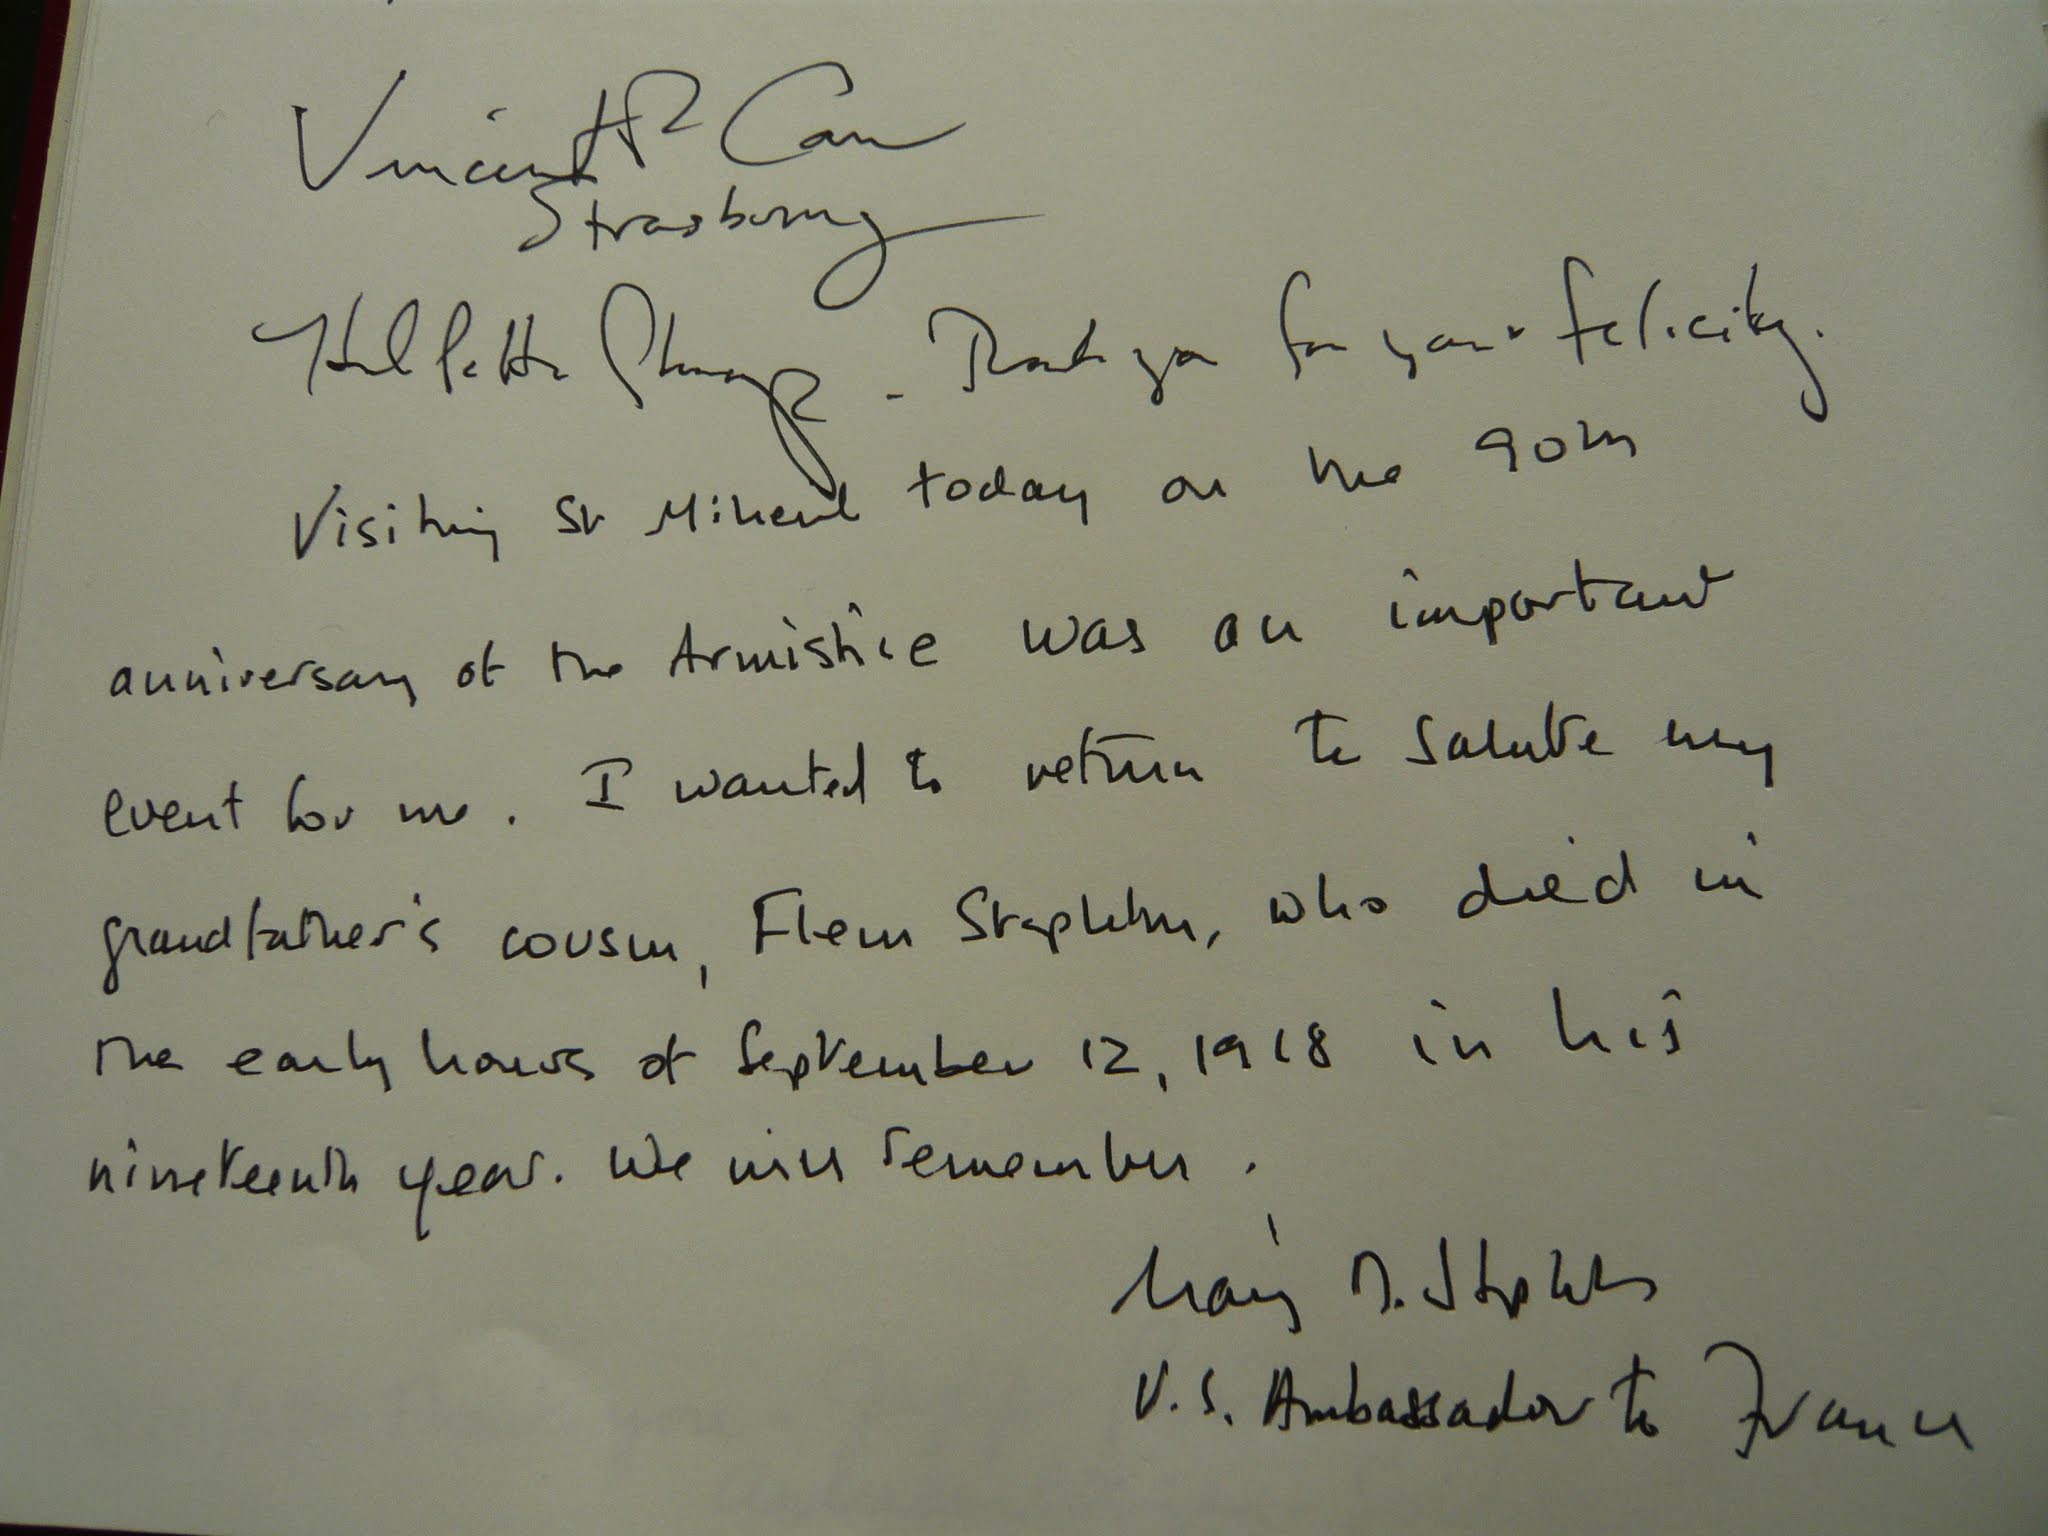 Vincent Carver
Strasbourg
Thank you for your felicity.
Visiting St Mihiel today on the 90th
anniversary of the Armistice was an important
event for me. I wanted to return to salute my
grandfather's cousin, Flem Stapleton, who died in
the early hours of September 12, 1918 in his
nineteenth year. We will remember.
Craig R. Stapleton
U.S. Ambassador to France